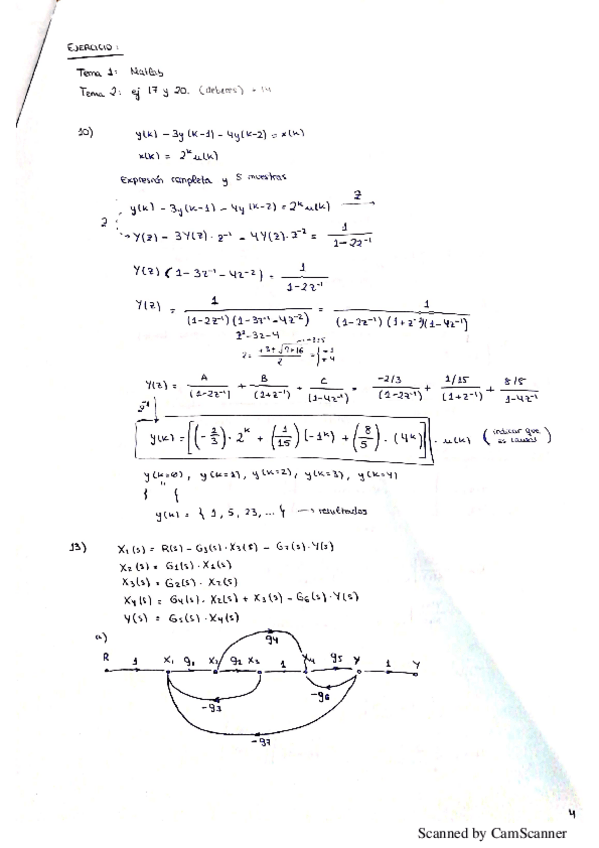 EJERCICIO:
Tema 1: Matlab
Tema 2: ej 17 y 20. (deberes)
10) y(k) - 3y(k-1) - 4y(k-2) = x(k)
x(k) = 2^k u(k)
Expresión completa y 5 muestras
y(k) - 3y(k-1) - 4y(k-2) = 2^k u(k) Z
2 → Y(z) - 3Y(z)·z^-1 - 4Y(z)·z^-2 = 1/(1-2z^-1)
Y(z) (1 - 3z^-1 - 4z^-2) = 1/(1-2z^-1)
Y(z) = 1/((1-2z^-1)(1-3z^-1-4z^-2)) = 1/((1-2z^-1)(1+z^-1)(1-4z^-1))
z^2-3z-4
z = (+3±√(9+16))/2 = { -1 +4
Y(z) = A/(1-2z^-1) + B/(1+z^-1) + C/(1-4z^-1) = (-2/3)/(1-2z^-1) + (1/15)/(1+z^-1) + (8/5)/(1-4z^-1)
z^-1
y(k) = [(-2/3)·2^k + (1/15)(-1^k) + (8/5)·(4^k)]·u(k) (indicar que es causal)
y(k=0), y(k=1), y(k=2), y(k=3), y(k=4)
y(k) = { 1, 5, 23, ... } → resultados
13) X1(s) = R(s) - G3(s)·X3(s) - G7(s)·Y(s)
X2(s) = G1(s)·X1(s)
X3(s) = G2(s)·X2(s)
X4(s) = G4(s)·X2(s) + X3(s) - G6(s)·Y(s)
Y(s) = G5(s)·X4(s)
a)
g4
R 1 X1 g1 X2 g2 X3 1 X4 g5 Y 1 Y
-g3 -g6
-g7
4
Scanned by CamScanner